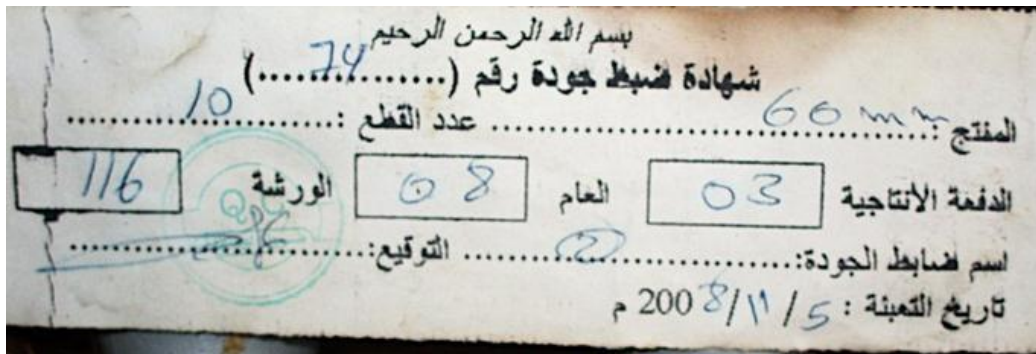 بسم الله الرحمن الرحيم
شهادة ضبط جودة رقم (......74......)
المفتج : 60 mm ................ عدد القطع : ......10......
الدفعة الأنتاجية 03 العام 08 الورشة 116
اسم ضابط الجودة:......2...... التوقيع:................
تاريخ التعبئة : 5 / 11 / 2008 م